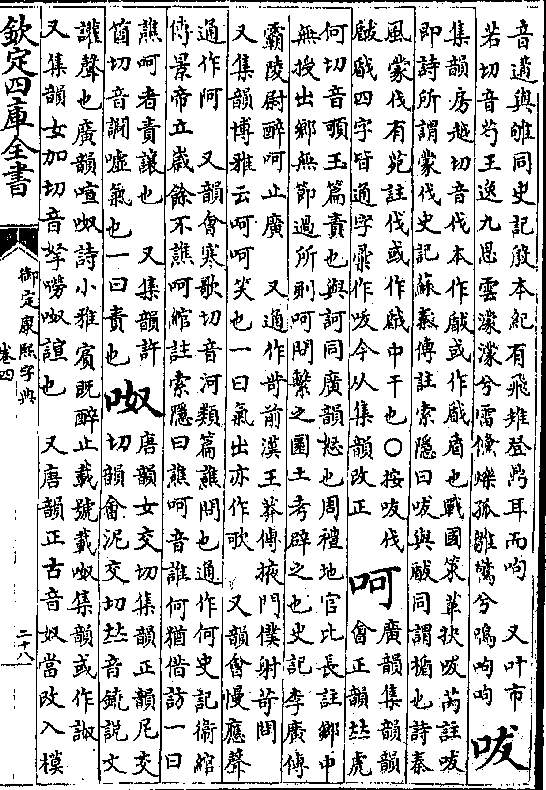 音遘與雊同史記殷本紀有飛雉登鼎耳而呴　又叶市
若切音芍王逸九思雲濛濛兮霣儵爍孤雛驚兮鳴呴呴　㕹
集韻房越切音伐本作瞂或作㕹盾也戰國策革抉㕹芮註㕹
即詩所謂蒙伐史記蘇秦傳註索隱曰㕹與瞂同謂楯也詩秦
風蒙伐有苑註伐或作瞂中干也○按㕹伐
瞂㕹四字皆通字彙作㕹今从集韻改正　呵　廣韻集韻韻會正韻𠀤虎
何切音訶玉篇責也與訶同廣韻怒也周禮地官比長註鄉中
無授出鄉無節過所則呵問繫之圜土考辟之也史記李廣傳
霸陵尉醉呵止廣　又通作苛前漢王莽傳掖門僕射苛問
又集韻博雅云呵呵笑也一曰氣出亦作歌　又韻會慢應聲
通作阿　又韻會寒歌切音河類篇譙問也通作何史記衞綰
傳景帝立歲餘不譙呵綰註索隱曰譙呵音誰何猶借訪一曰
譙呵者責讓也　又集韻許
箇切音謌噓氣也一曰責也　呶　唐韻女交切集韻正韻尼交切韻會泥交切𠀤音鐃說文
讙聲也廣韻喧呶詩小雅賓既醉止載號載呶集韻或作詉
又集韻女加切音拏嘮呶諠也　又唐韻正古音奴當改入模
欽定四庫全書
御定康熙字典
卷四
二十八